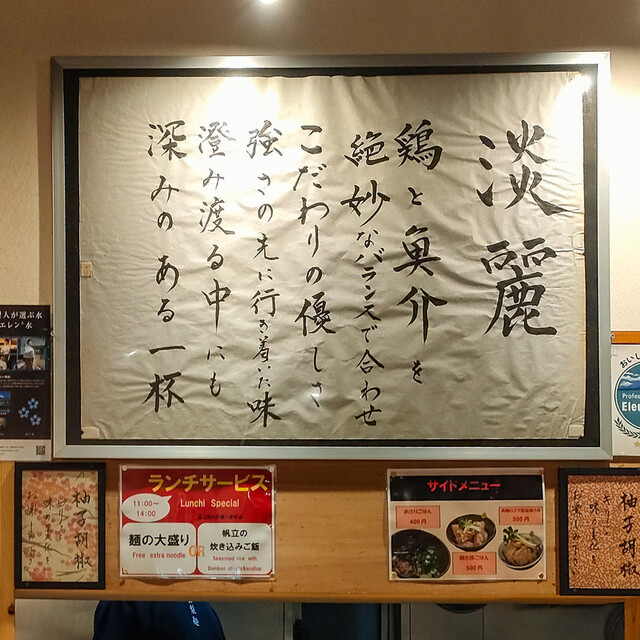 淡麗
鶏と魚介を
絶妙なバランスで合わせ
こだわりの優しさ
強さの先に行き着いた味
澄み渡る中にも
深みのある一杯
人が選ぶ水
エレン水
おいし
Profess
Elen
柚子胡椒
ランチサービス
Lunchi Special
11:00〜
14:00
麺の大盛り
Free extra noodle
OR
帆立の
炊き込みご飯
Seasoned rice with
Bamboo shoots&scallop
サイドメニュー
400円
500円
500円
柚子胡椒